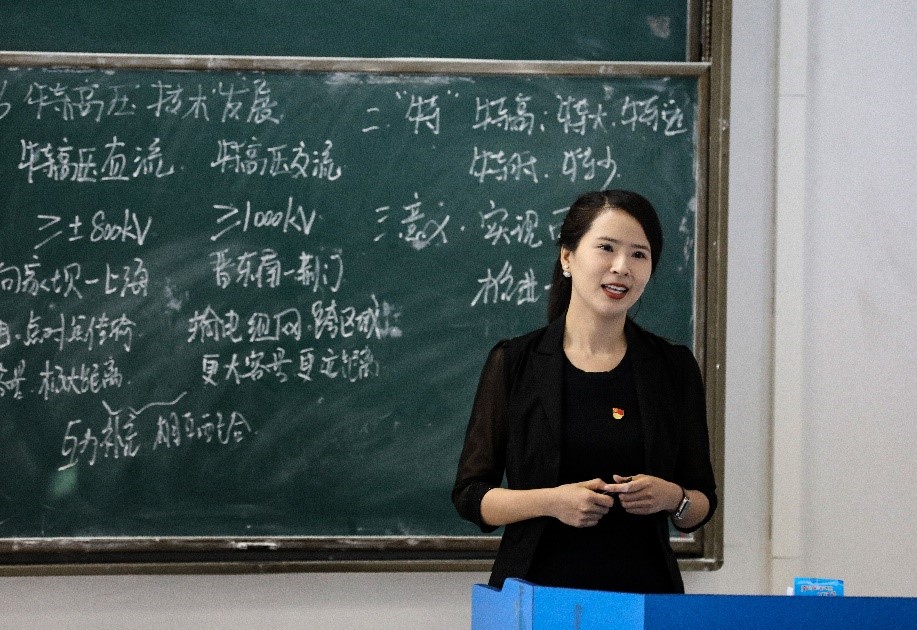 特高压技术发展
特高压直流 特高压交流
≥±800kV ≥1000kV
向家坝—上海 晋东南—荆门
点对点传输 输电组网.跨区域
容量.极大距离 更大容量更远距离
互为补充 相互配合
二."特" 特高;特大.特远
特少
三.意义.实现
推进